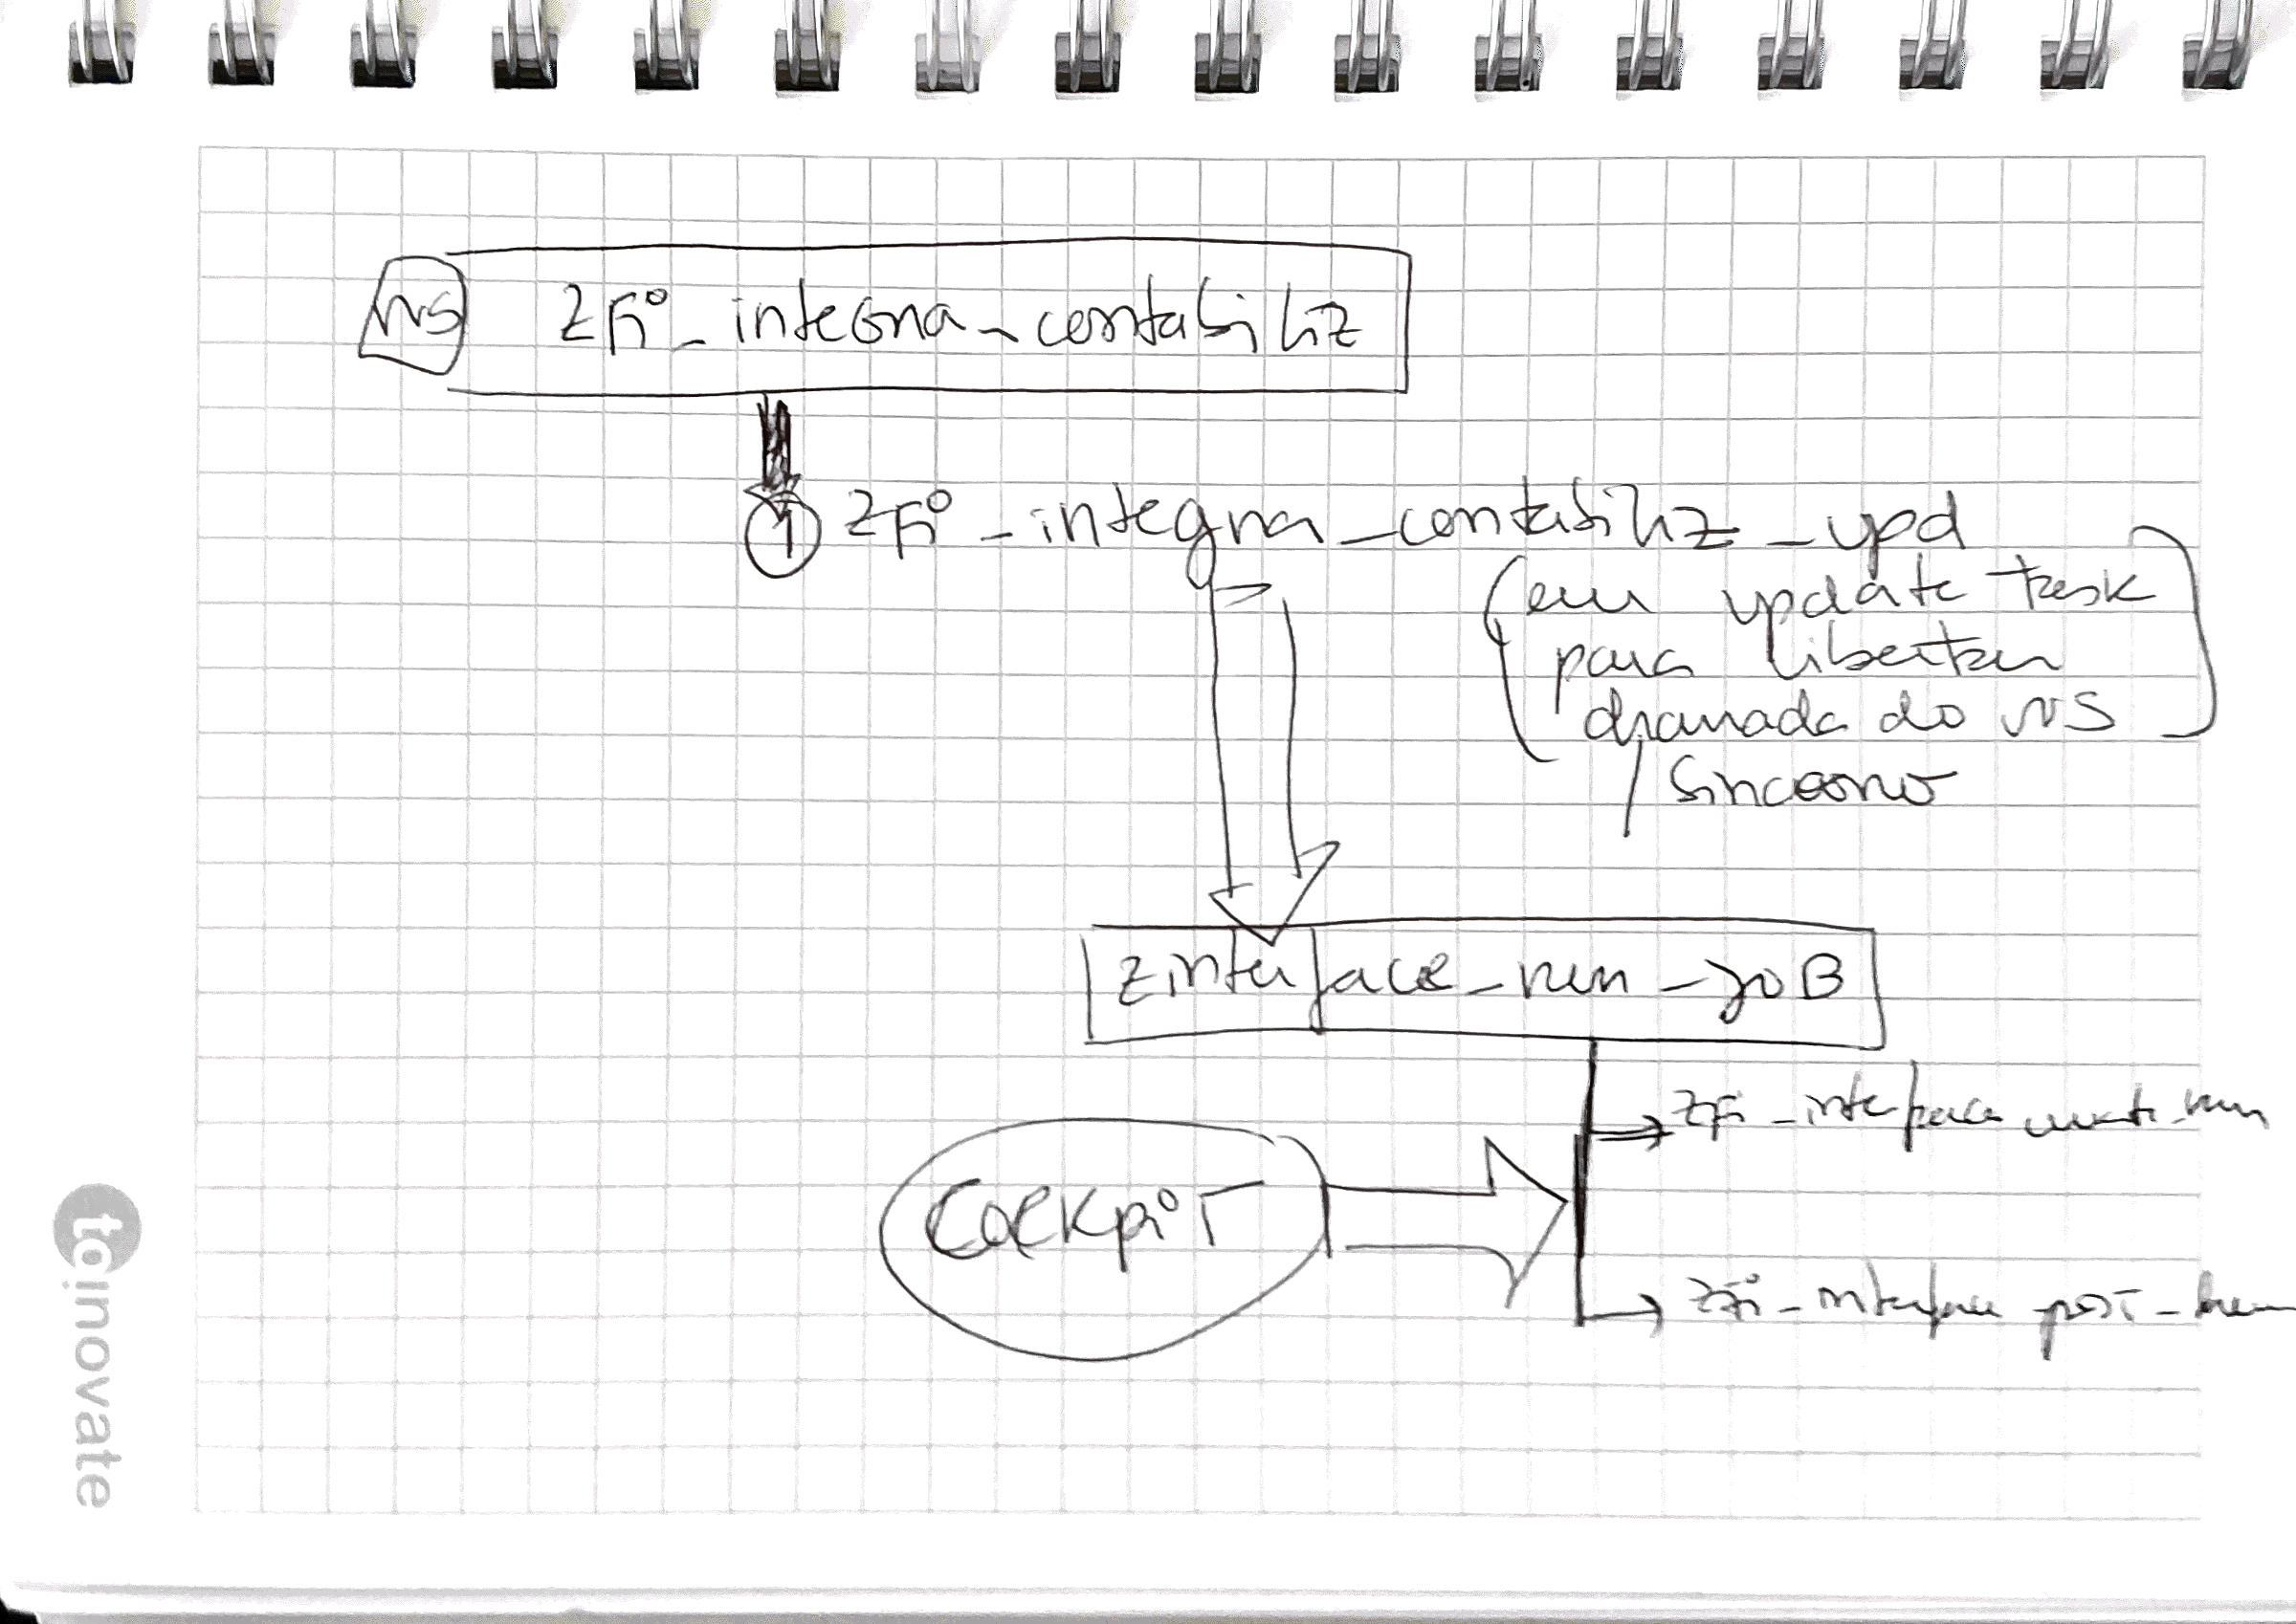 WS
ZFi_integra_contabiliz
1 ZFi_integra_contabiliz_upd
(em update task
para libertar
chamada do WS
síncrono)
zinterface_run_JOB
ZFi_interface
Cockpit
ZFi_interface post_
toinovate